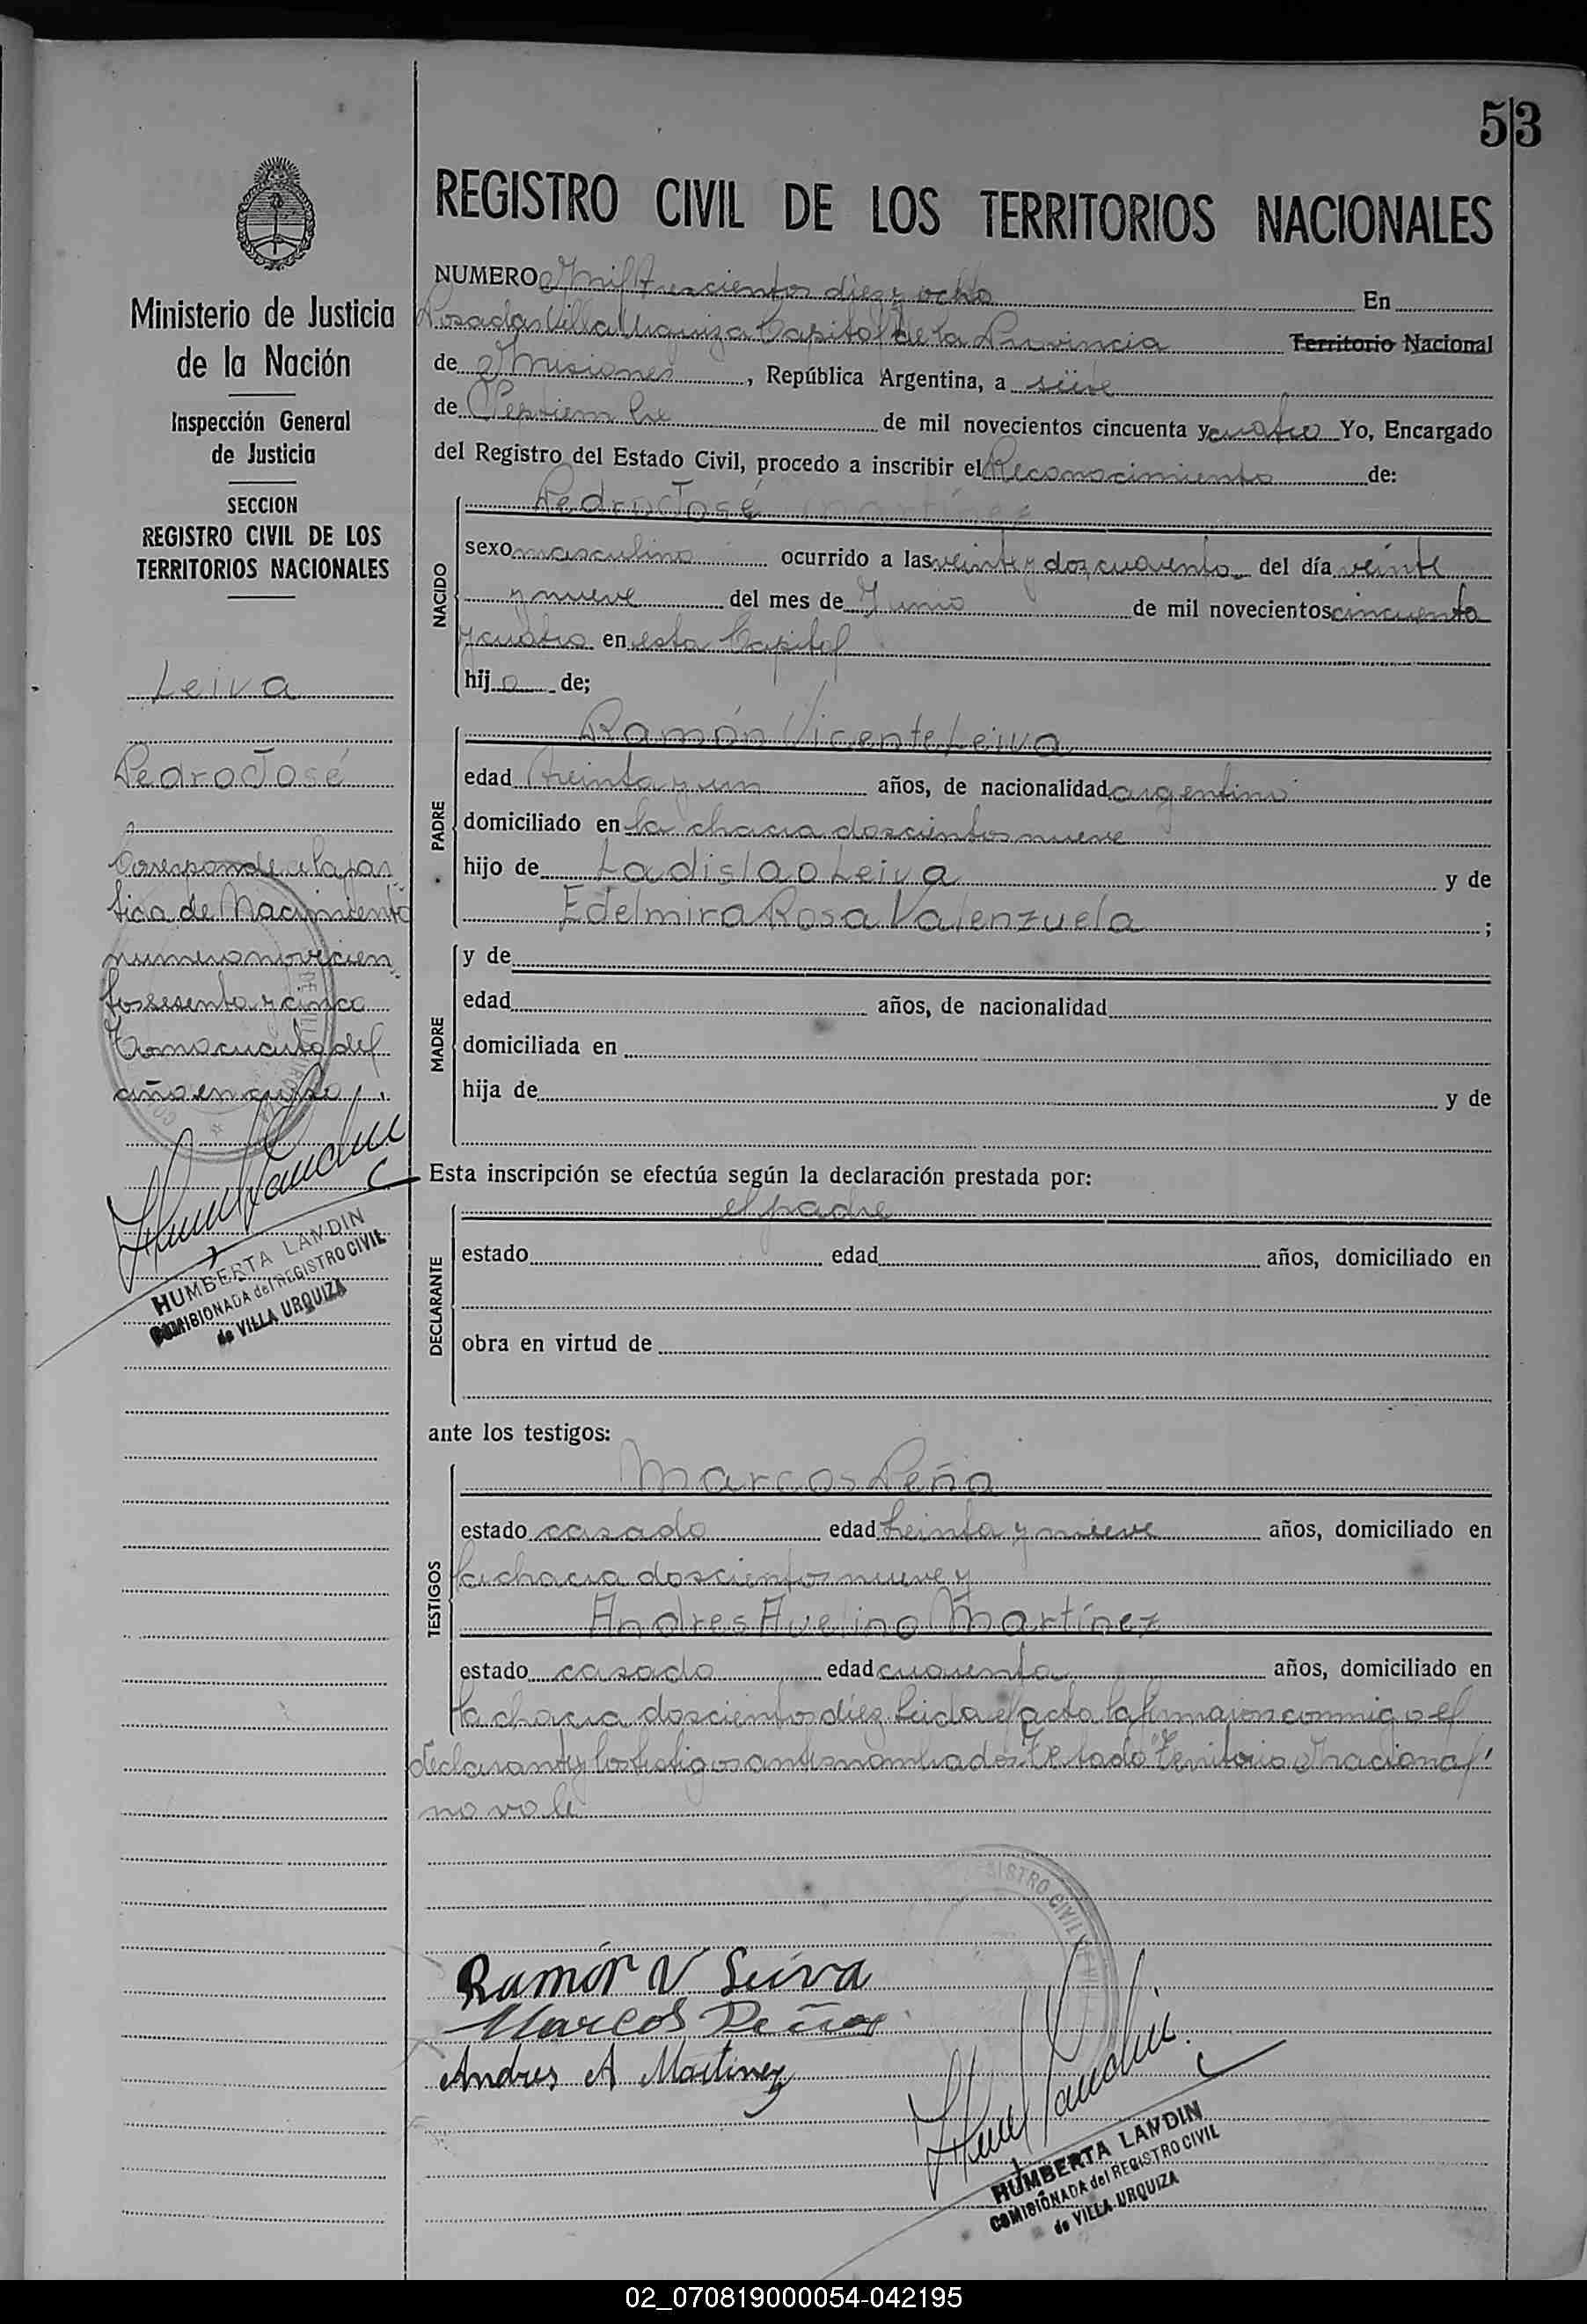 53
REGISTRO CIVIL DE LOS TERRITORIOS NACIONALES
NUMERO Mil trescientos diez y ocho En
Posadas Villa Urquiza Capital de la Provincia Territorio Nacional
de Misiones, República Argentina, a siete
de Septiembre de mil novecientos cincuenta y cuatro Yo, Encargado
del Registro del Estado Civil, procedo a inscribir el Reconocimiento de:
NACIDO
Pedro José Martínez
sexo masculino ocurrido a las veinte y dos, cuarenta del día veinte
y nueve del mes de Junio de mil novecientos cincuenta
y cuatro en esta Capital
hijo de;
PADRE
Ramón Vicente Leiva
edad treinta y un años, de nacionalidad argentino
domiciliado en la chacra doscientos nueve
hijo de Ladislao Leiva y de
Edelmira Rosa Valenzuela ;
MADRE
y de
edad años, de nacionalidad
domiciliada en
hija de y de
Esta inscripción se efectúa según la declaración prestada por:
DECLARANTE
el padre
estado edad años, domiciliado en
obra en virtud de
ante los testigos:
TESTIGOS
Marcos Peña
estado casado edad treinta y nueve años, domiciliado en
la chacra doscientos nueve y
Andres Avelino Martínez
estado casado edad cuarenta años, domiciliado en
la chacra doscientos diez Leida el acta la firmaron conmigo el
declarante y los testigos antes nombrados. Testado "Territorio Nacional"
no vale
Ramón V Leiva
Marcos Peña
Andres A Martinez
HUMBERTA LANDIN
COMISIONADA del REGISTRO CIVIL
de VILLA URQUIZA
Ministerio de Justicia
de la Nación
Inspección General
de Justicia
SECCION
REGISTRO CIVIL DE LOS
TERRITORIOS NACIONALES
Leiva
Pedro José
Corresponde a la par
tida de Nacimiento
numero novecien
tos sesenta y cinco
Tomo cuarto del
año en curso
HUMBERTA LANDIN
COMISIONADA del REGISTRO CIVIL
de VILLA URQUIZA
02_070819000054-042195